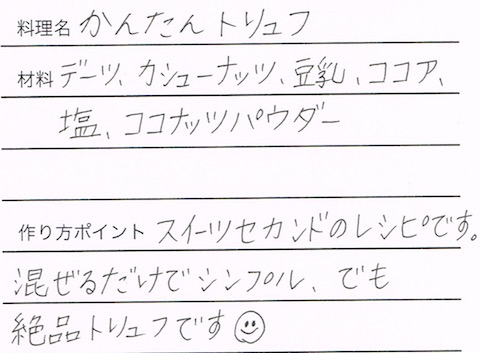 料理名 かんたんトリュフ
材料 デーツ、カシューナッツ、豆乳、ココア、
塩、ココナッツパウダー
作り方ポイント スイーツセカンドのレシピです。
混ぜるだけでシンプル、でも
絶品トリュフです☺